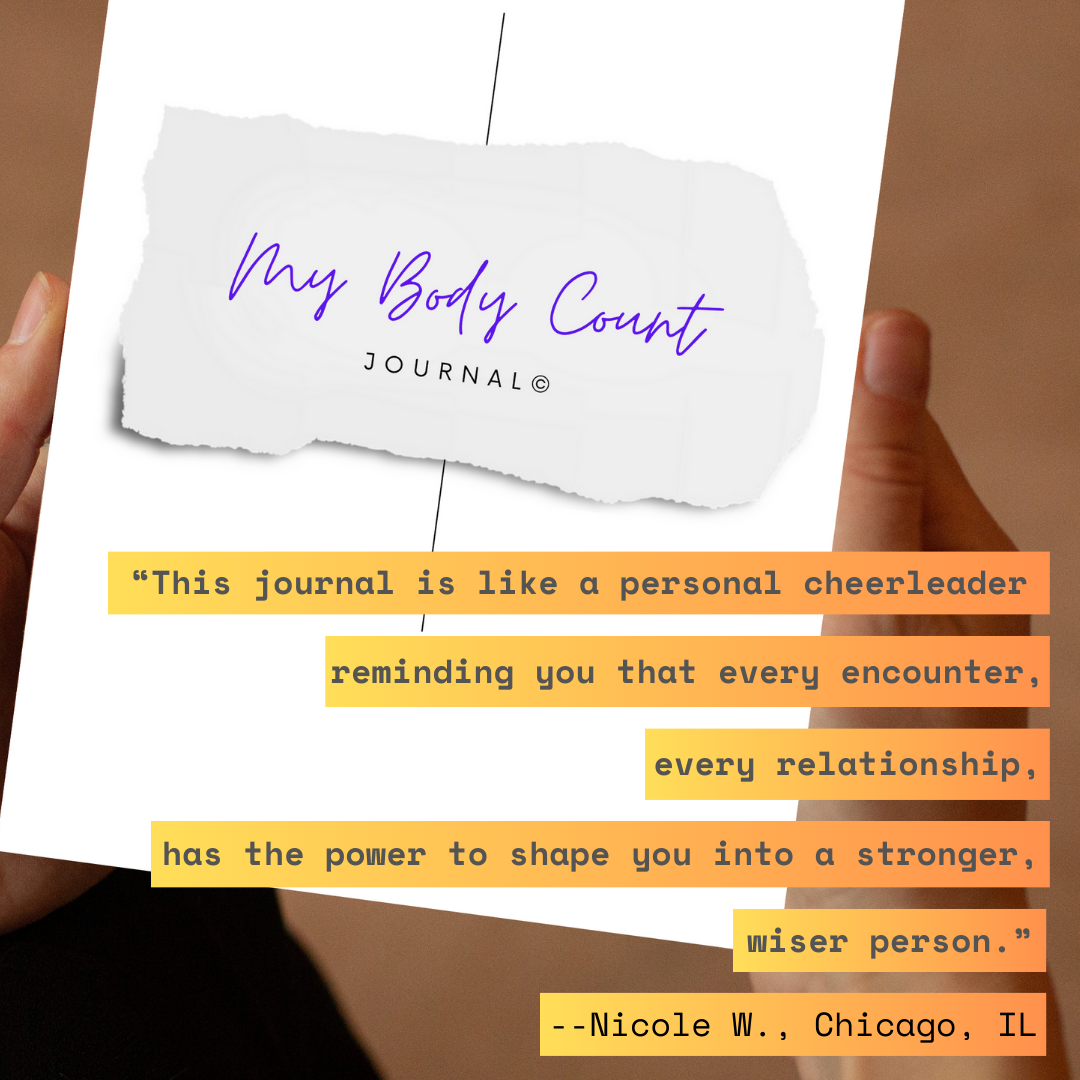 My Body Count
JOURNAL©
“This journal is like a personal cheerleader
reminding you that every encounter,
every relationship,
has the power to shape you into a stronger,
wiser person.”
--Nicole W., Chicago, IL